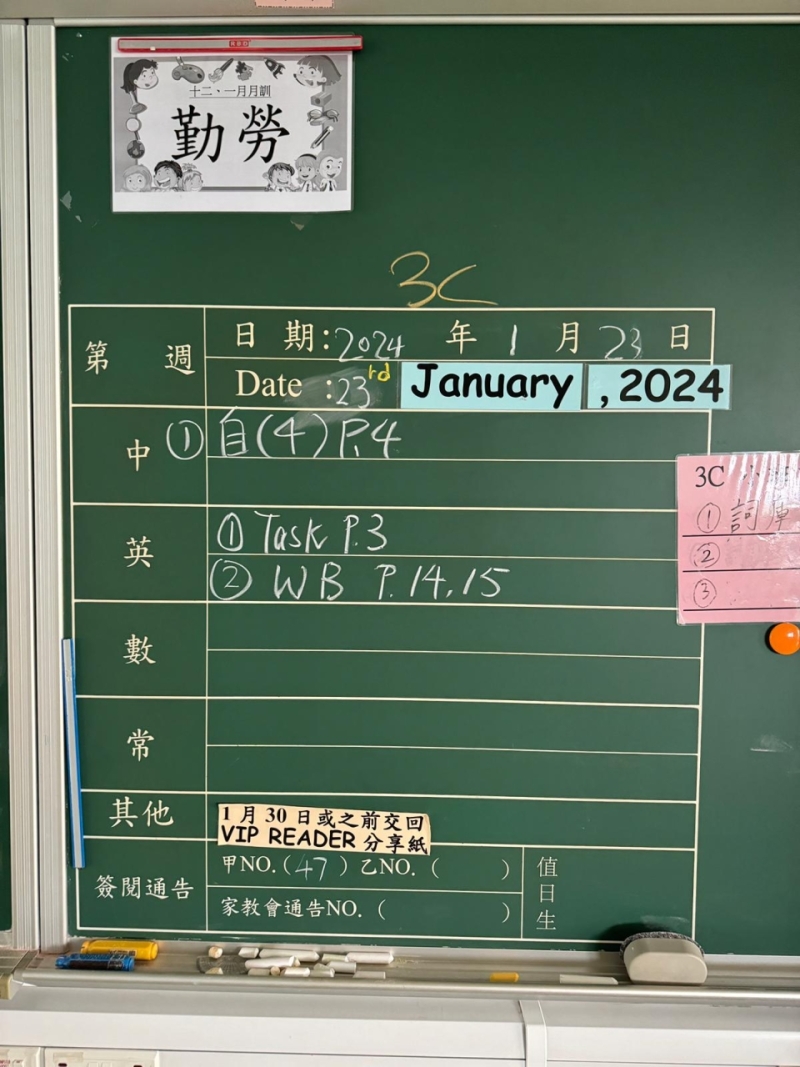 十二、一月月訓
勤勞
3C
第 週
日 期:2024 年 1 月 23 日
Date :23rd January , 2024
中 ① 自(4) P.4
英 ① Task P.3
② WB P.14,15
數
常
其他
1 月 30 日或之前交回
VIP READER 分享紙
簽閱通告
甲NO.(47) 乙NO.( )
家教會通告NO.( )
值日生
3C 小
① 詞庫
②
③